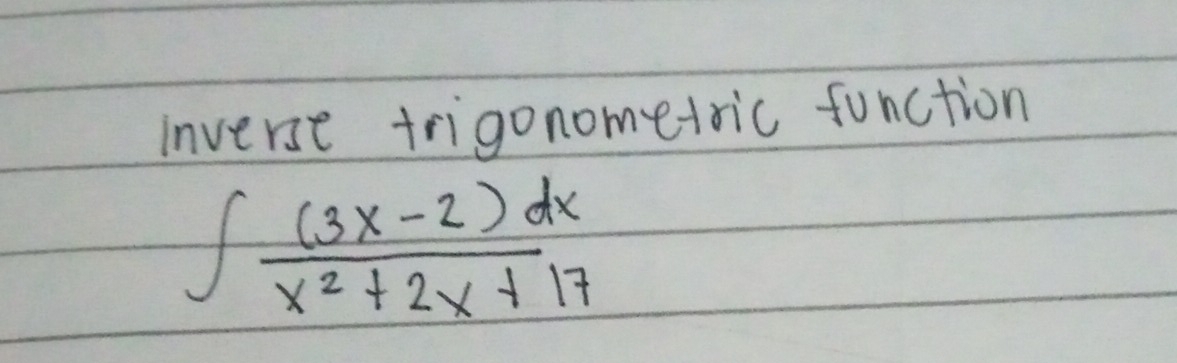 inverse trigonometric function
∫ (3x-2) dx
x² + 2x + 17